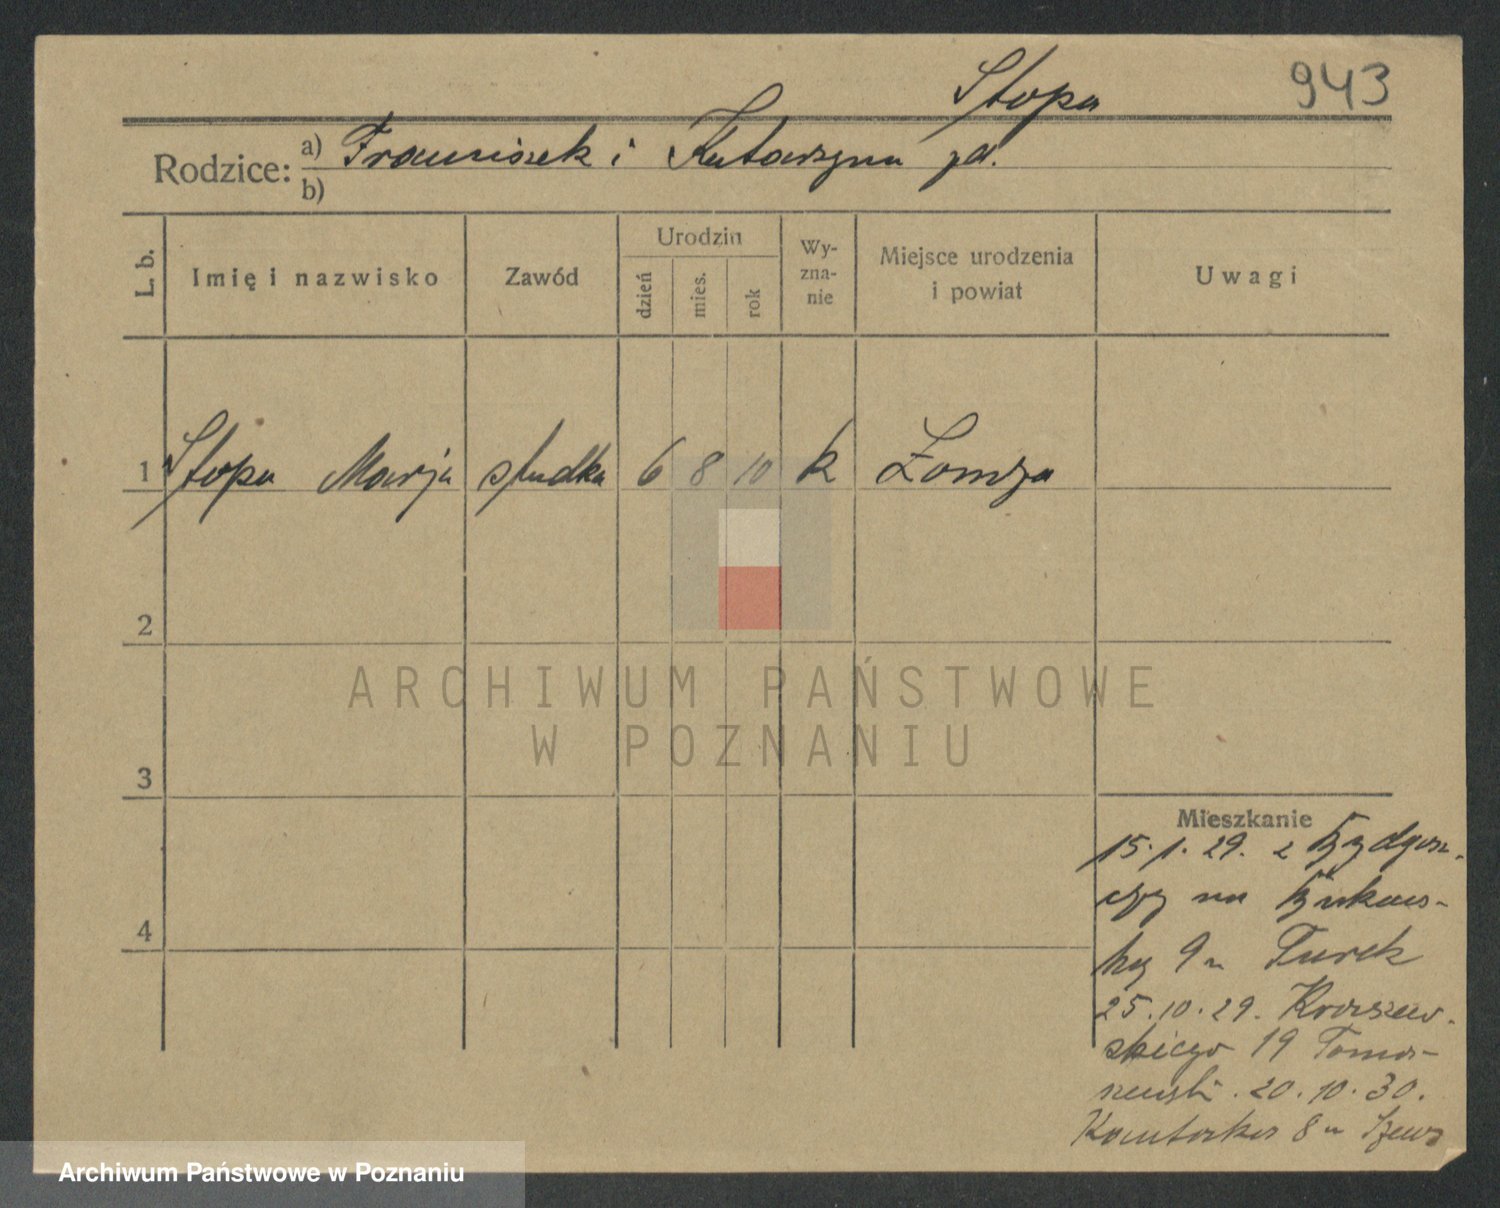 Stopa 943
Rodzice: a) Franciszek i Katarzyna zd.
b)
L. b. Imię i nazwisko Zawód Urodzin dzień mies. rok Wy-zna-nie Miejsce urodzenia i powiat Uwagi
1 Stopa Marja studka 6 8 10 k Łomża
2
ARCHIWUM PAŃSTWOWE
W POZNANIU
3
Mieszkanie
15.1.29. z Bydgosz-
czy na Bukows-
ką 9 Turek
4
25.10.29. Kraszew-
skiego 19 Toma-
szewski. 20.10.30.
8
Archiwum Państwowe w Poznaniu